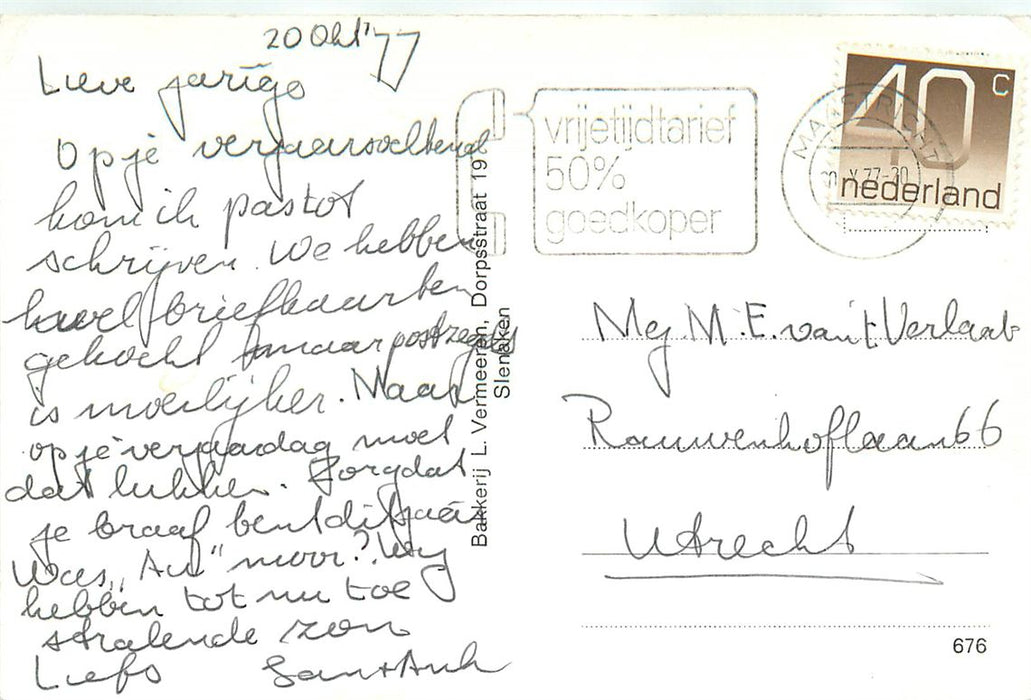 20 Okt '77
Lieve jarige
Op je verjaarsvoltend
kom ik pas tot
schrijven. We hebben
havel briefkaarten
gekocht maar postzegels
is moeilijker. Maar
op je verjaardag moet
dat lukken. Zorg dat
je braaf bent dit jaar
Was „An" mooi? Wij
hebben tot nu toe
stralende zon
Liefs Jan + Ank
Bakkerij L. Vermeeren, Dorpsstraat 19
Slenaken
vrijetijdtarief
50%
goedkoper
MAASTRICHT
X.77-20
40 c
nederland
Mej. M.E. van 't Verlaat
Rauwenhoflaan 66
Utrecht
676